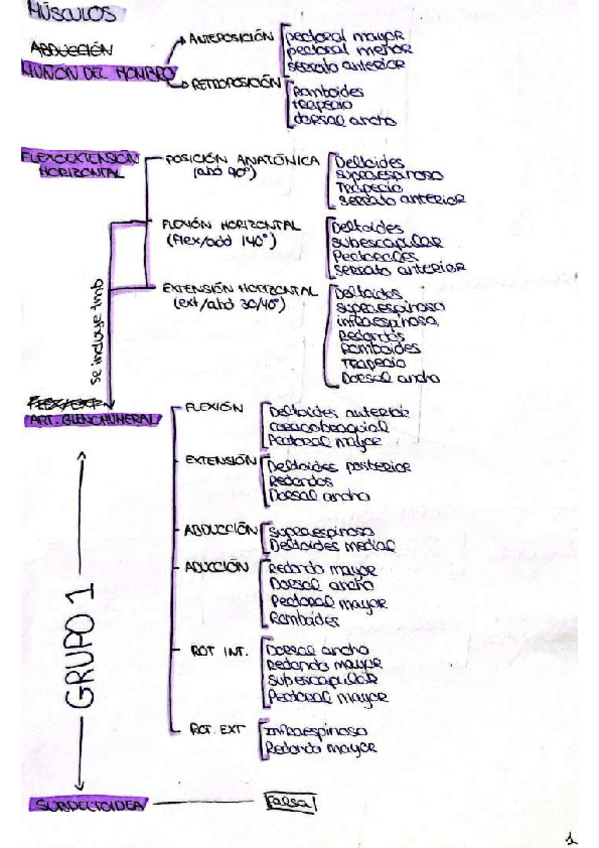 MÚSCULOS
ABDUCCIÓN
MUÑÓN DEL HOMBRO
ANTEPOSICIÓN
pectoral mayor
pectoral menor
serrato anterior
RETROPOSICIÓN
Romboides
trapecio
dorsal ancho
FLEXOEXTENSIÓN
HORIZONTAL
POSICIÓN ANATÓMICA
(abd 90°)
Deltoides
Supraespinoso
Trapecio
Serrato anterior
FLEXIÓN HORIZONTAL
(flex/add 140°)
Deltoides
Subescapular
Pectorales
Serrato anterior
EXTENSIÓN HORIZONTAL
(ext/abd 30/40°)
Deltoides
Supraespinoso
infraespinoso
Redondos
Romboides
Trapecio
Dorsal ancho
se incluye tmb
ART. GLENOHUMERAL
FLEXIÓN
Deltoides anterior
coracobraquial
Pectoral mayor
EXTENSIÓN
Deltoides posterior
Redondos
Dorsal ancho
ABDUCCIÓN
Supraespinoso
Deltoides medial
ADUCCIÓN
Redondo mayor
Dorsal ancho
Pectoral mayor
Romboides
ROT INT.
Dorsal ancho
Redondo mayor
Subescapular
Pectoral mayor
ROT. EXT
Infraespinoso
Redondo mayor
GRUPO 1
SUBDELTOIDEA
Falsa
1